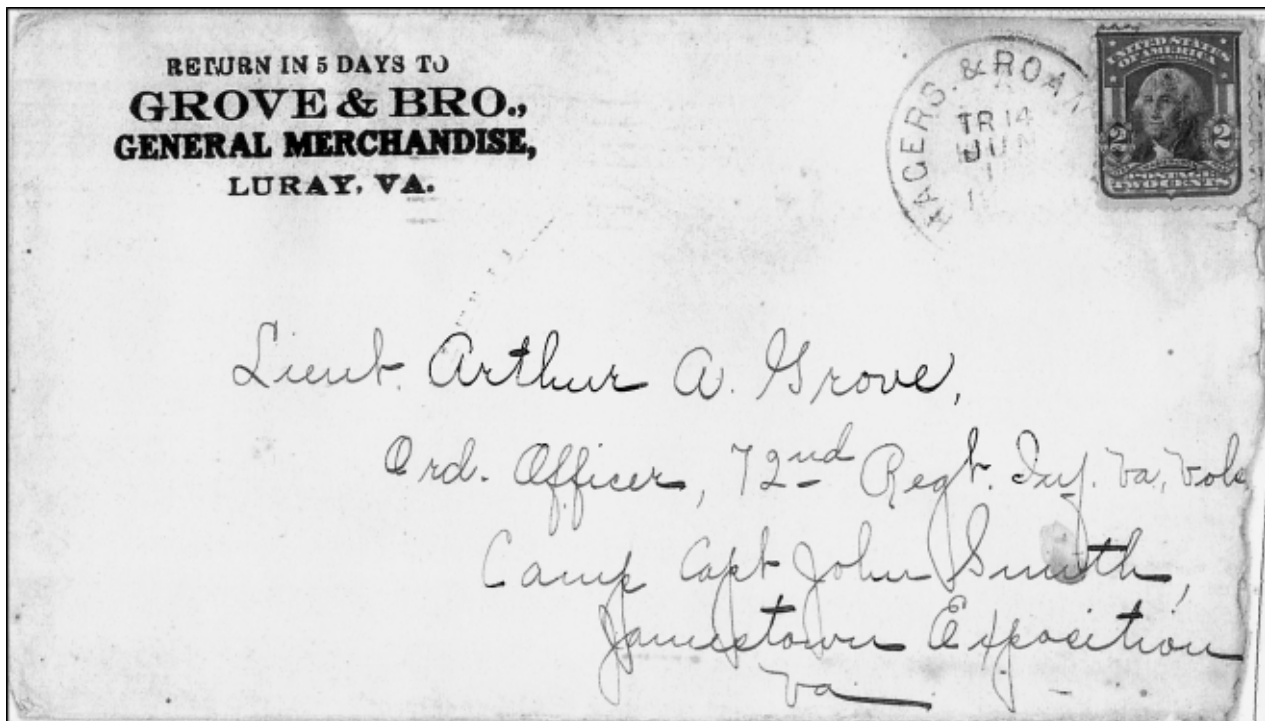 RETURN IN 5 DAYS TO
GROVE & BRO.,
GENERAL MERCHANDISE,
LURAY, VA.
HAGERS. & ROA
TR 14
JUN
1
UNITED STATES
OF AMERICA
2 2
POSTAGE
TWO CENTS
Lieut. Arthur A. Grove,
Ord. Officer, 72nd Regt. Inf. Va. Vols
Camp Capt John Smith,
Jamestown Exposition
Va